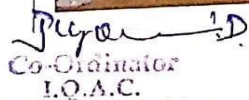 Co-Ordinator
I.Q.A.C.